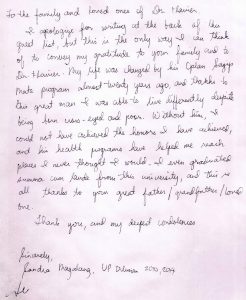 To the family and loved ones of Dr. Hainer
I apologize for writing at the back of this
guest list, but this is the only way I can think
of to convey my gratitude to your family and to
Dr. Hainer. My life was changed by his Oplan Sagip
Mata program almost twenty years ago, and thanks to
this great man I was able to live differently despite
being born cross-eyed and poor. Without him, I
could not have achieved the honors I have achieved,
and his health programs have helped me reach
places I never thought I would. I even graduated
summa cum laude from this university, and this is
all thanks to your great father / grandfather / loved
one.
Thank you, and my deepest condolences
Sincerely,
Sandra Magalang, UP Diliman 2010, 2014